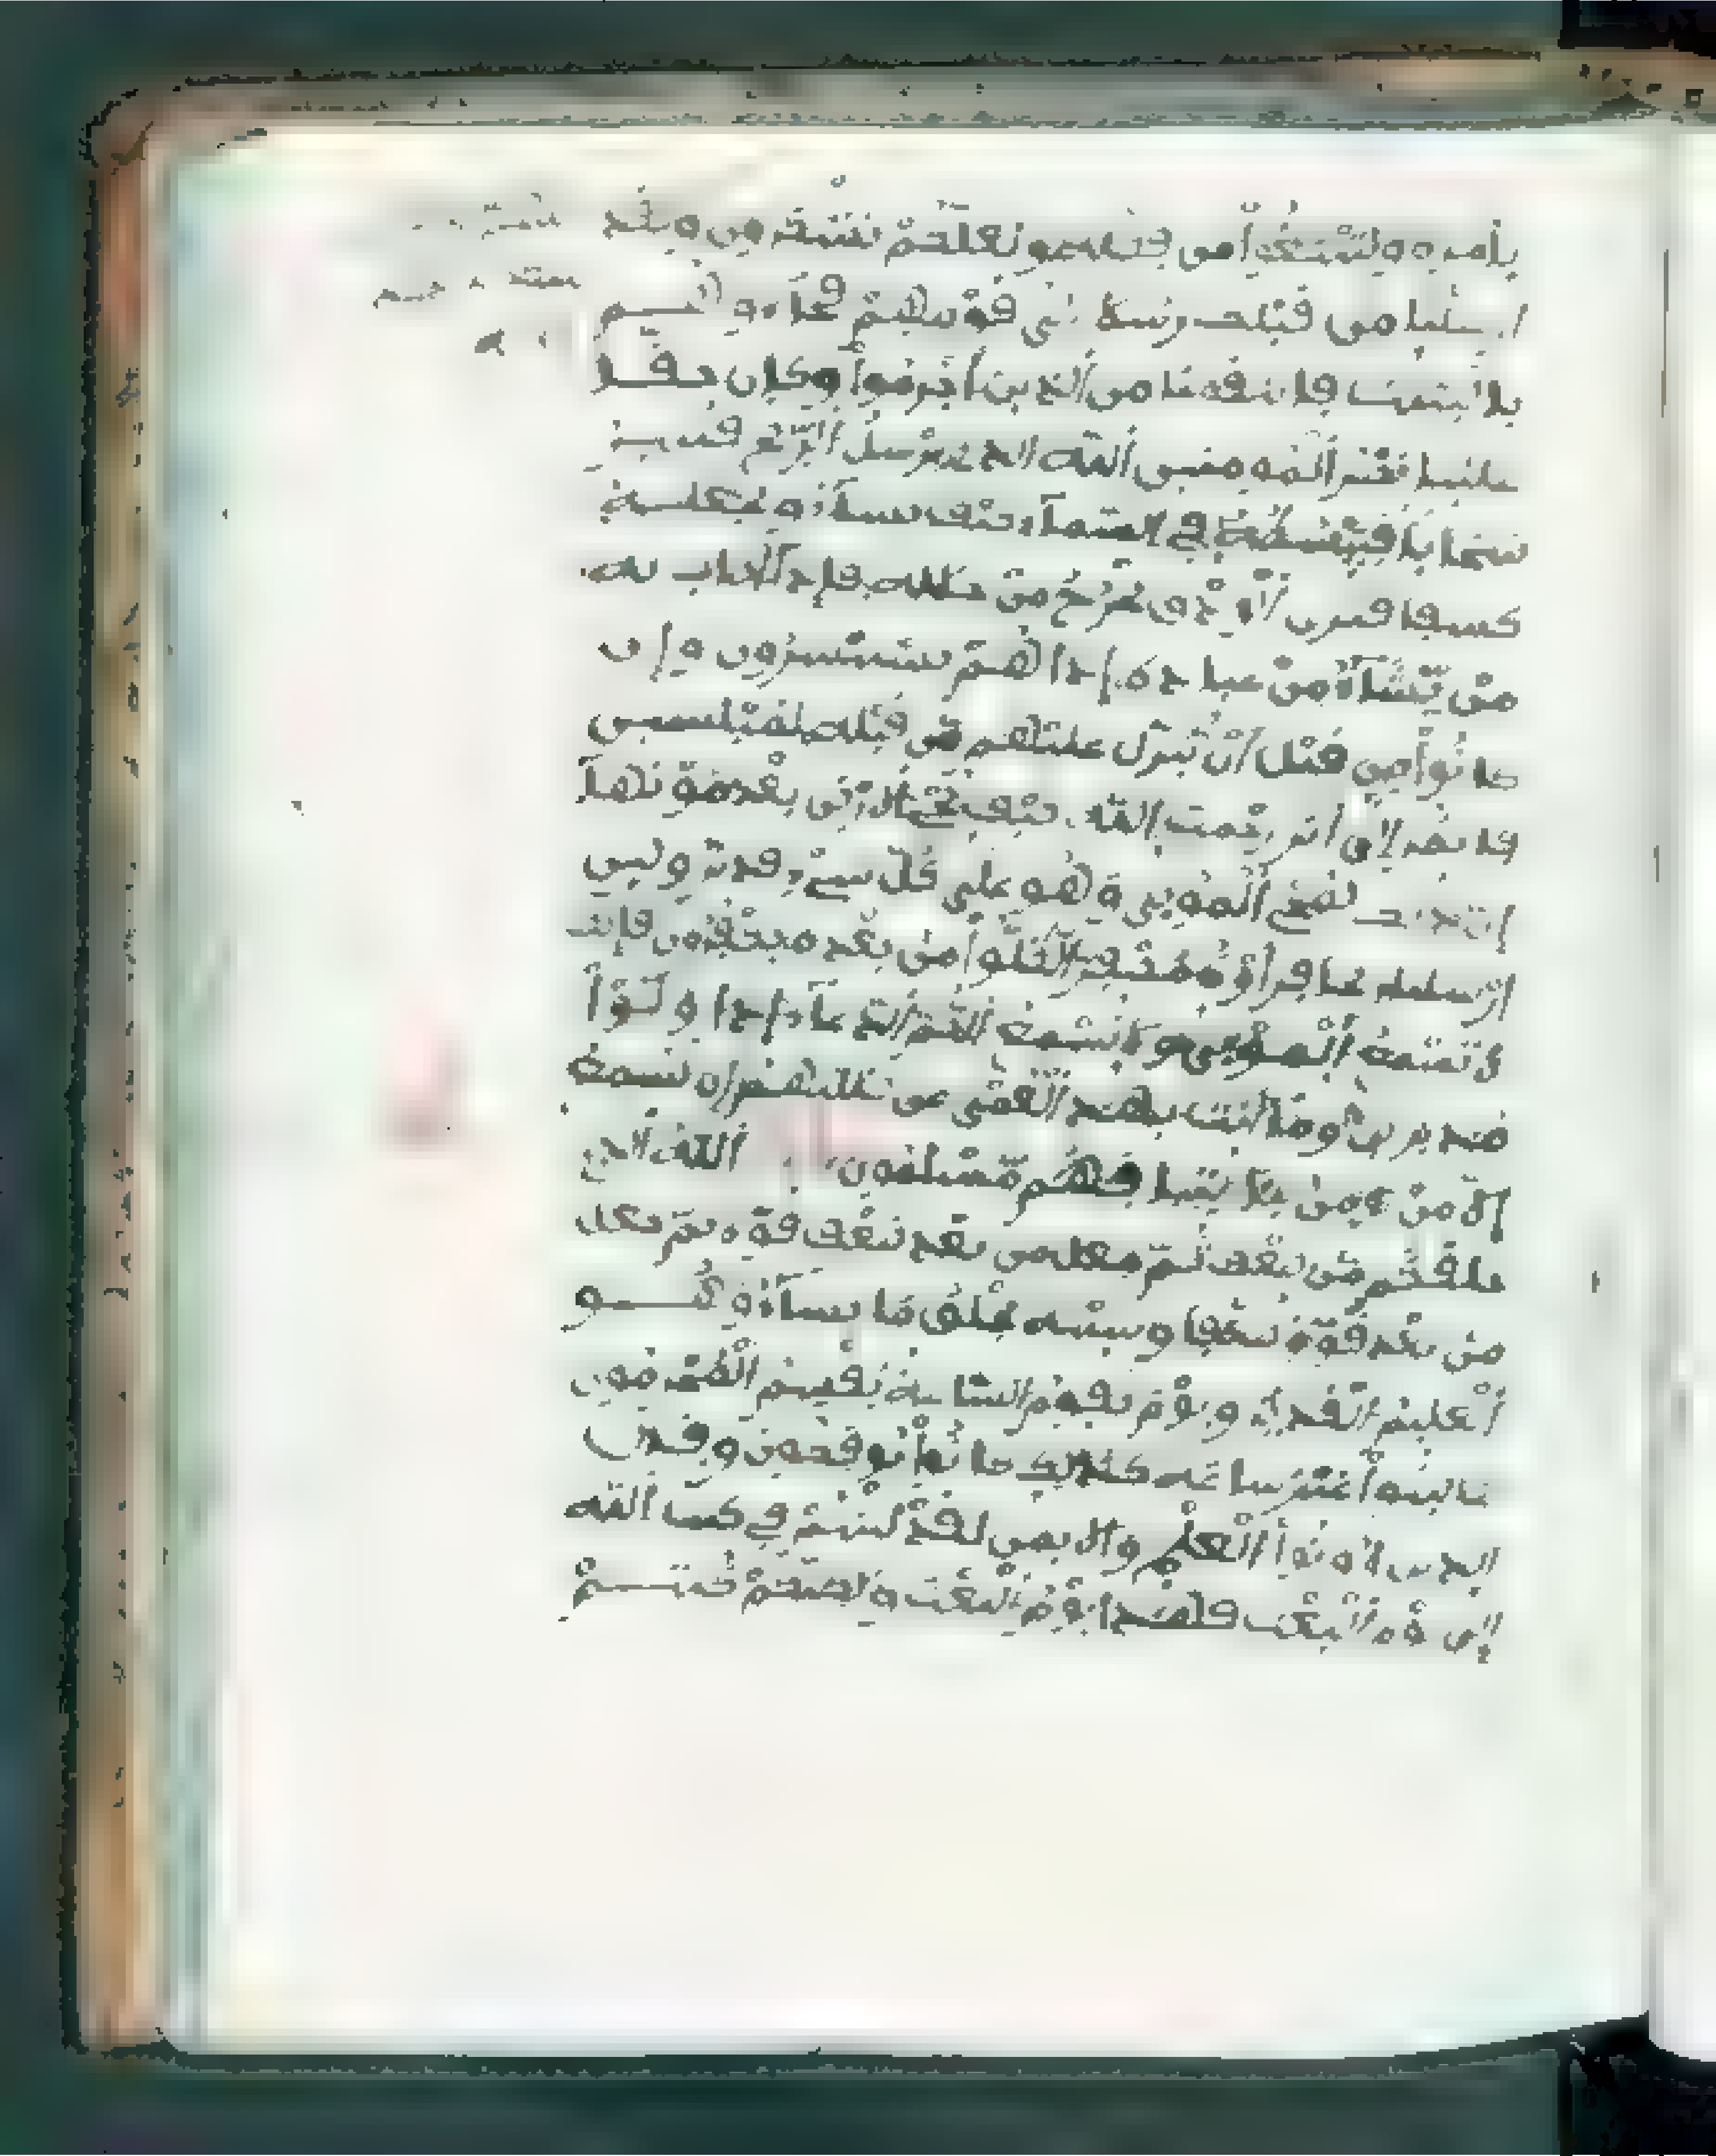 بأمره ولتبتغوا من فضله ولعلكم تشكرون ولقد
ارسلنا من قبلك رسلا الى قومهم فجاءوهم
بالبينت فانتقمنا من الذين أجرموا وكان حقا
علينا نصر المومنين الله الذي يرسل الريح فتثير
سحابا فيبسطه في السماء كيف يشاء ويجعله
كسفا فترى الودق يخرج من خلله فإذا أصاب به
من يشاء من عباده إذا هم يستبشرون وإن
كانوا من قبل أن ينزل عليهم من قبله لمبلسين
فانظر إلى أثر رحمت الله كيف يحي الارض بعد موتها
إن ذلك لمحي الموتى وهو على كل شيء قدير ولين
ارسلنا ريحا فرأوه مصفرا لظلوا من بعده يكفرون فإنك
لا تسمع الموتى ولا تسمع الصم الدعاء إذا ولوا
مدبرين وما أنت بهد العمي عن ضللتهم إن تسمع
إلا من يومن بئايتنا فهم مسلمون الله الذي
خلقكم من ضعف ثم جعل من بعد ضعف قوة ثم جعل
من بعد قوة ضعفا وشيبة يخلق ما يشاء وهو
العليم القدير ويوم تقوم الساعة يقسم المجرمون
ما لبثوا غير ساعة كذلك كانوا يوفكون وقال
الذين أوتوا العلم والايمن لقد لبثتم في كتب الله
إلى يوم البعث فهذا يوم البعث ولكنكم كنتم